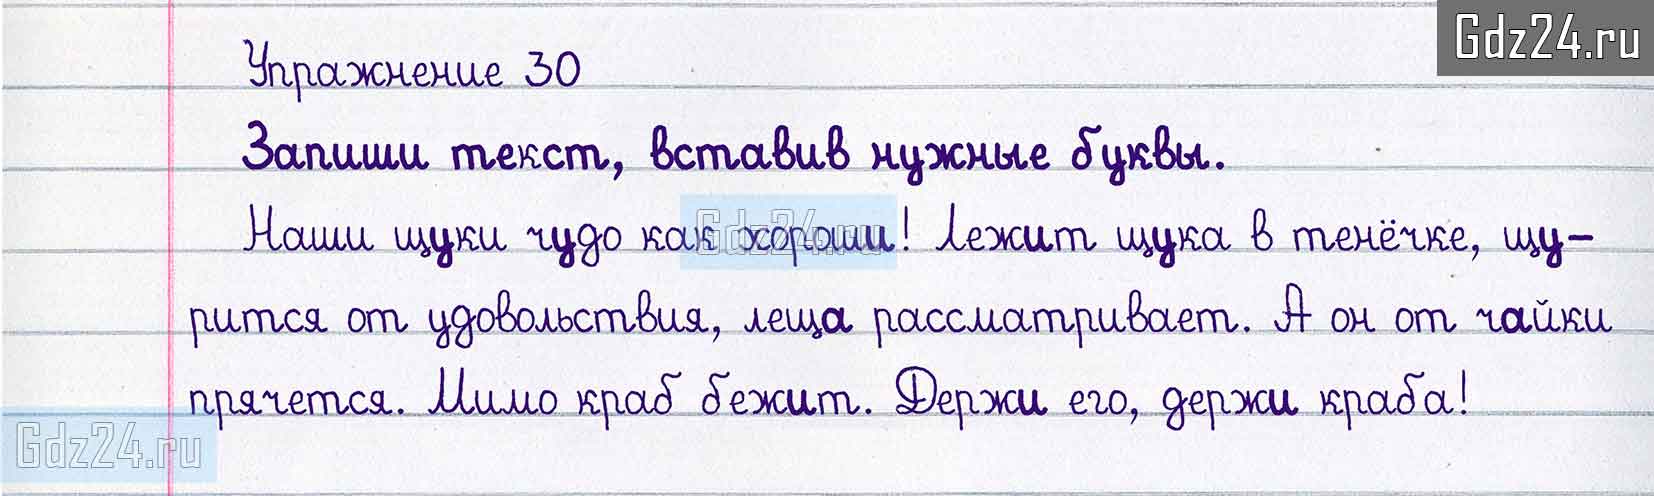 Gdz24.ru
Упражнение 30
Запиши текст, вставив нужные буквы.
Наши щуки чудо как хороши! Лежит щука в тенёчке, щу-
Gdz24.ru
рится от удовольствия, леща рассматривает. А он от чайки
прячется. Мимо краб бежит. Держи его, держи краба!
Gdz24.ru